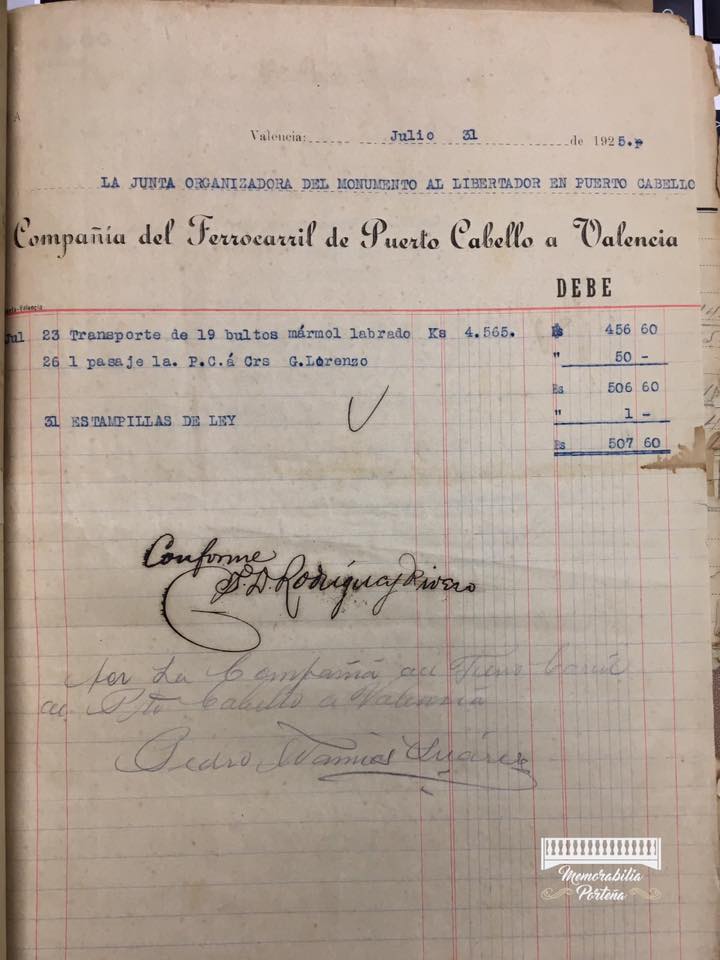 A
Valencia: Julio 31 de 1925.p
LA JUNTA ORGANIZADORA DEL MONUMENTO AL LIBERTADOR EN PUERTO CABELLO
Compañía del Ferrocarril de Puerto Cabello a Valencia
DEBE
Jul 23 Transporte de 19 bultos mármol labrado Ks 4.565. Bs 456 60
26 1 pasaje 1a. P.C.á Crs G.Lorenzo " 50 -
Bs 506 60
31 ESTAMPILLAS DE LEY " 1 -
Bs 507 60
Conforme
P. D. Rodríguez Rivero
Por La Compañia del Ferro Carril
de Pto Cabello a Valencia
Pedro Suárez
Memorabilia
Porteña